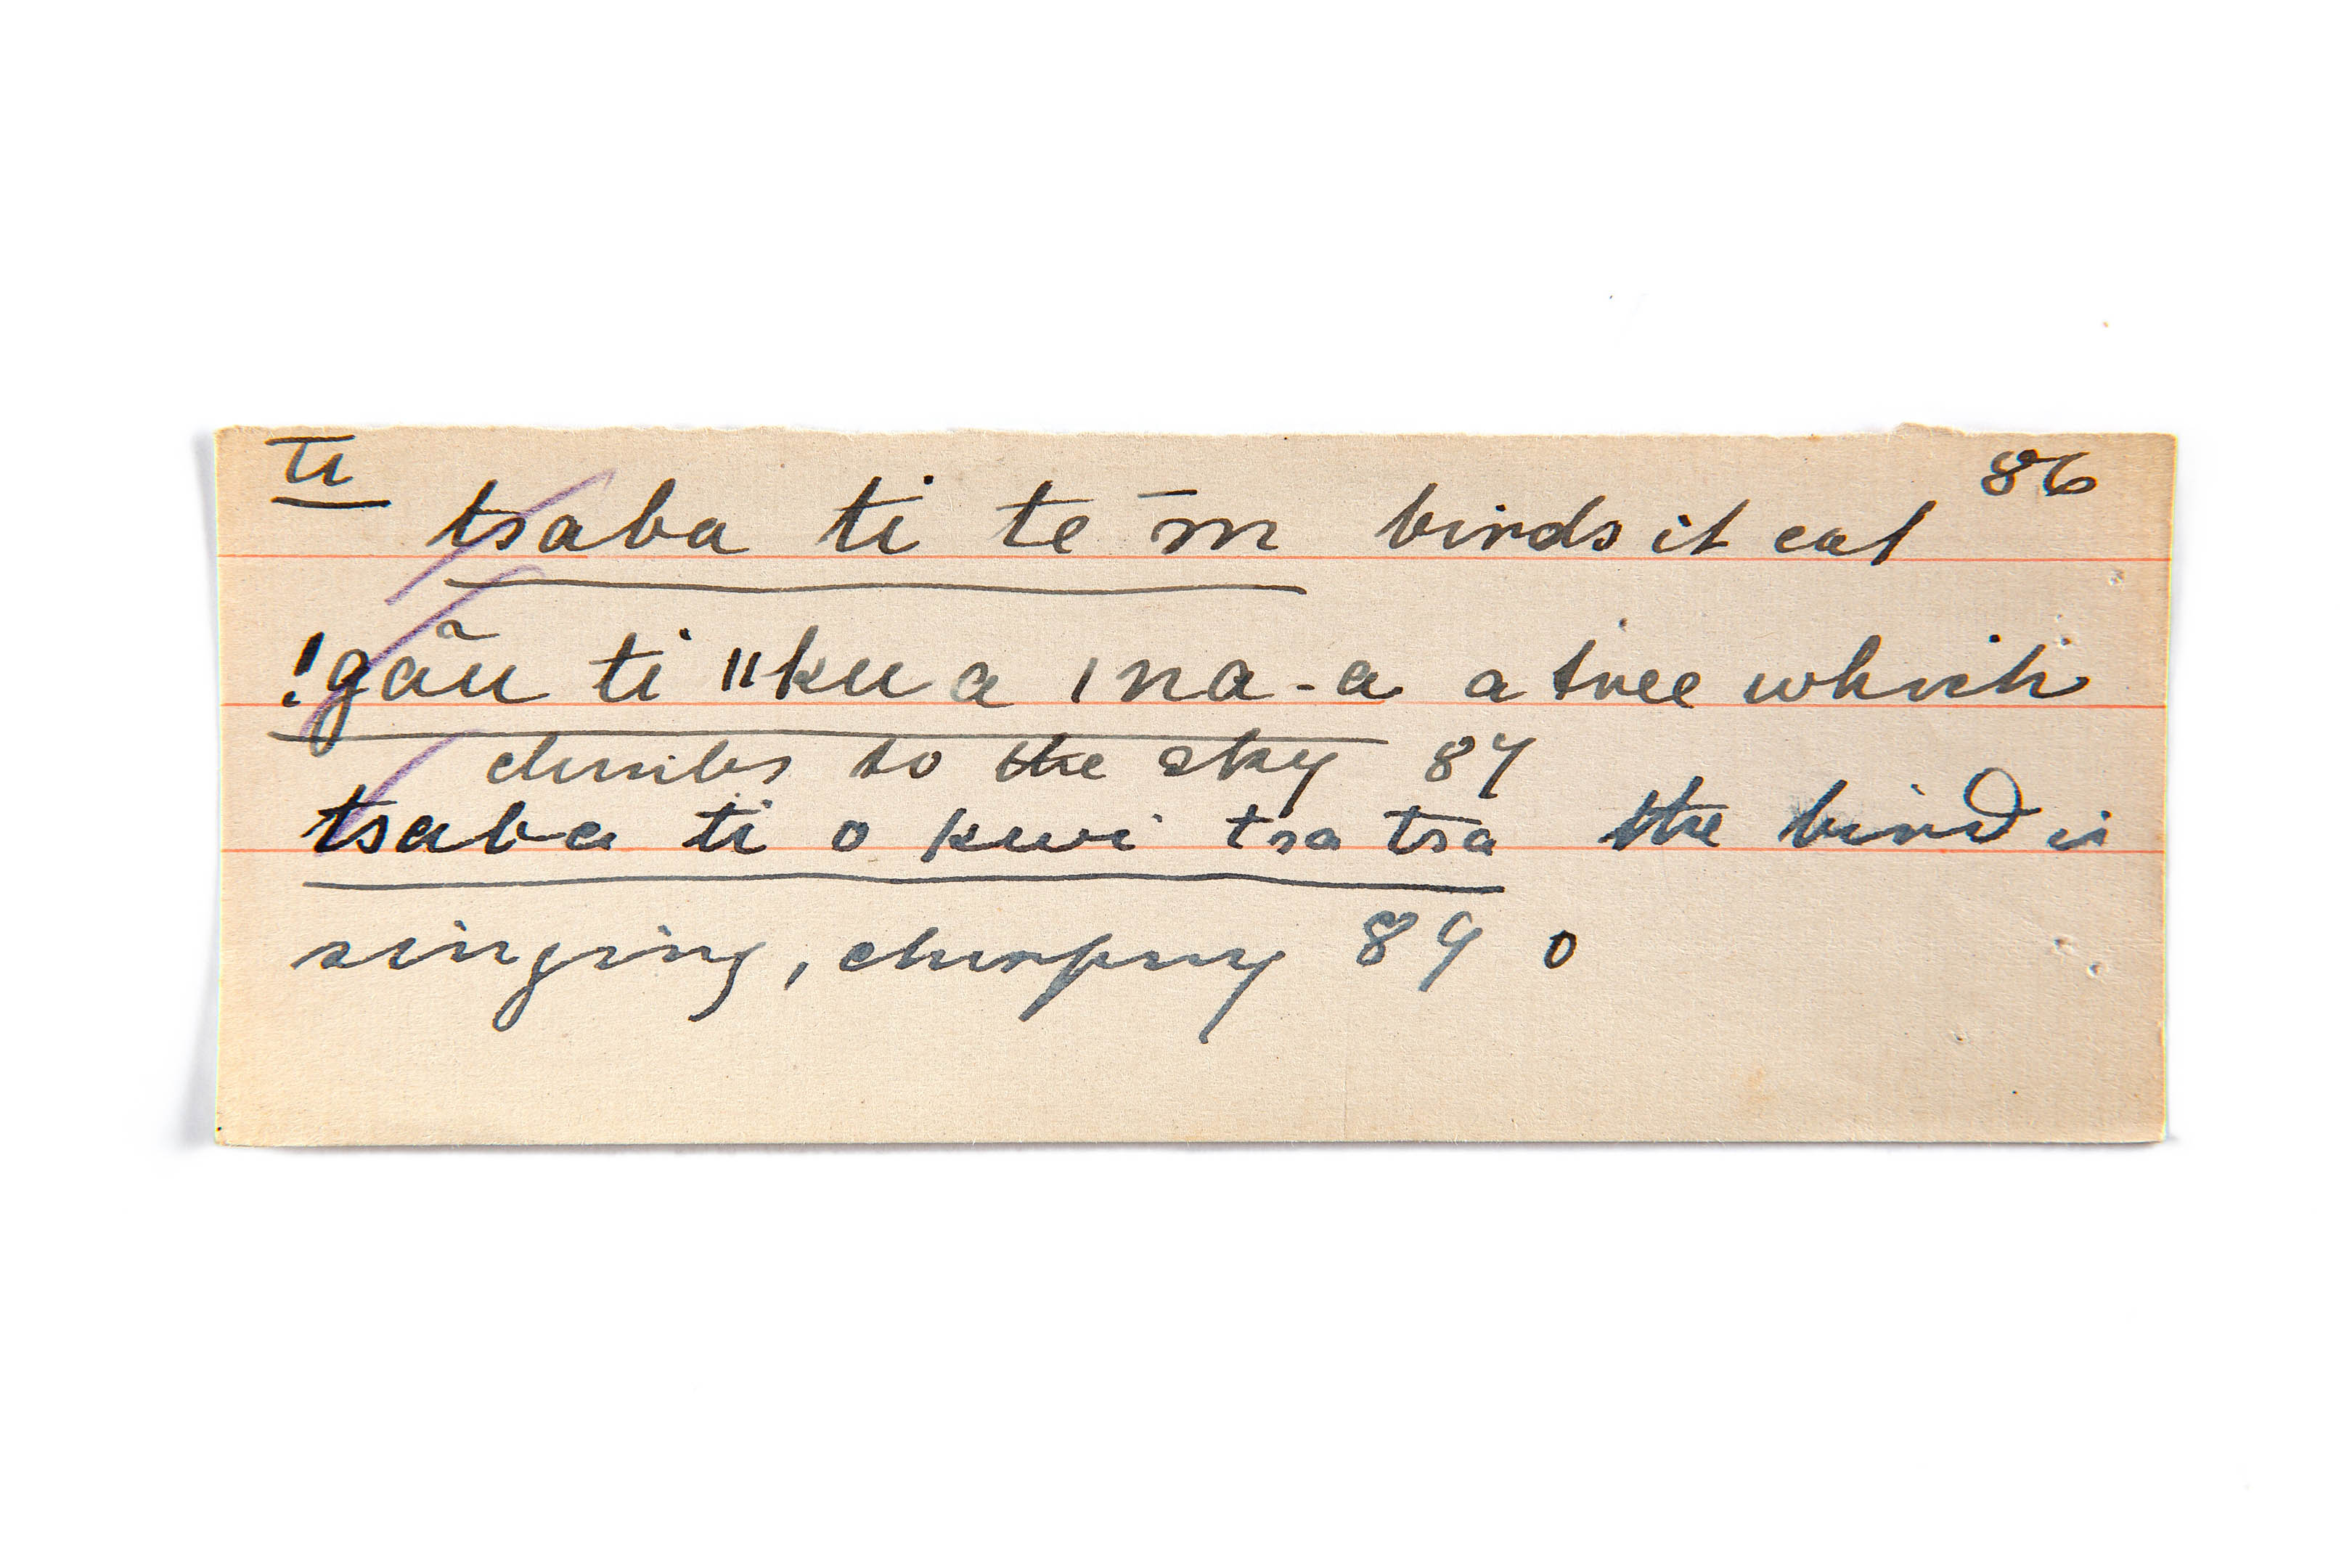 ti 86
tsaba ti te m̄ birds it eat
!gãu ti ǁku a ǀna-a a tree which
climbs to the sky 87
tsaba ti o kwi tsa tsa the bird is
singing, chirping 89 o